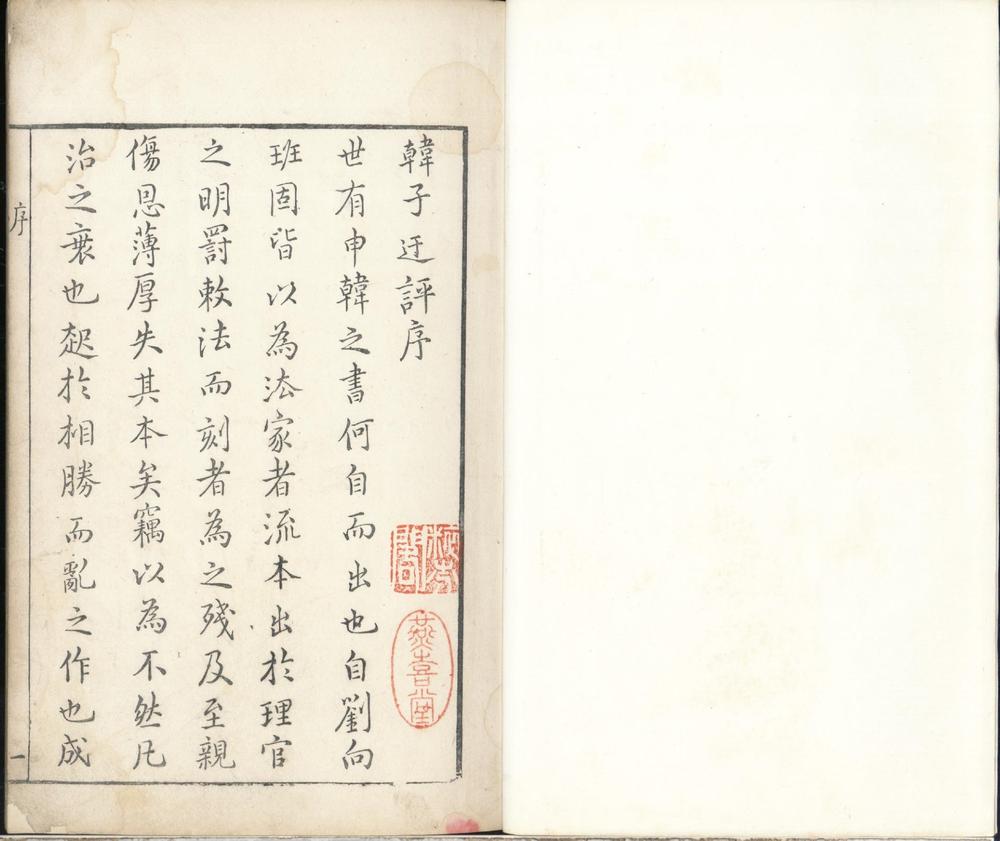 韓子迂評序
世有申韓之書何自而出也自劉向
班固皆以為法家者流本出於理官
之明罰敕法而刻者為之殘及至親
傷恩薄厚失其本矣竊以為不然凡
治之衰也起於相勝而亂之作也成
序
一
燕喜堂